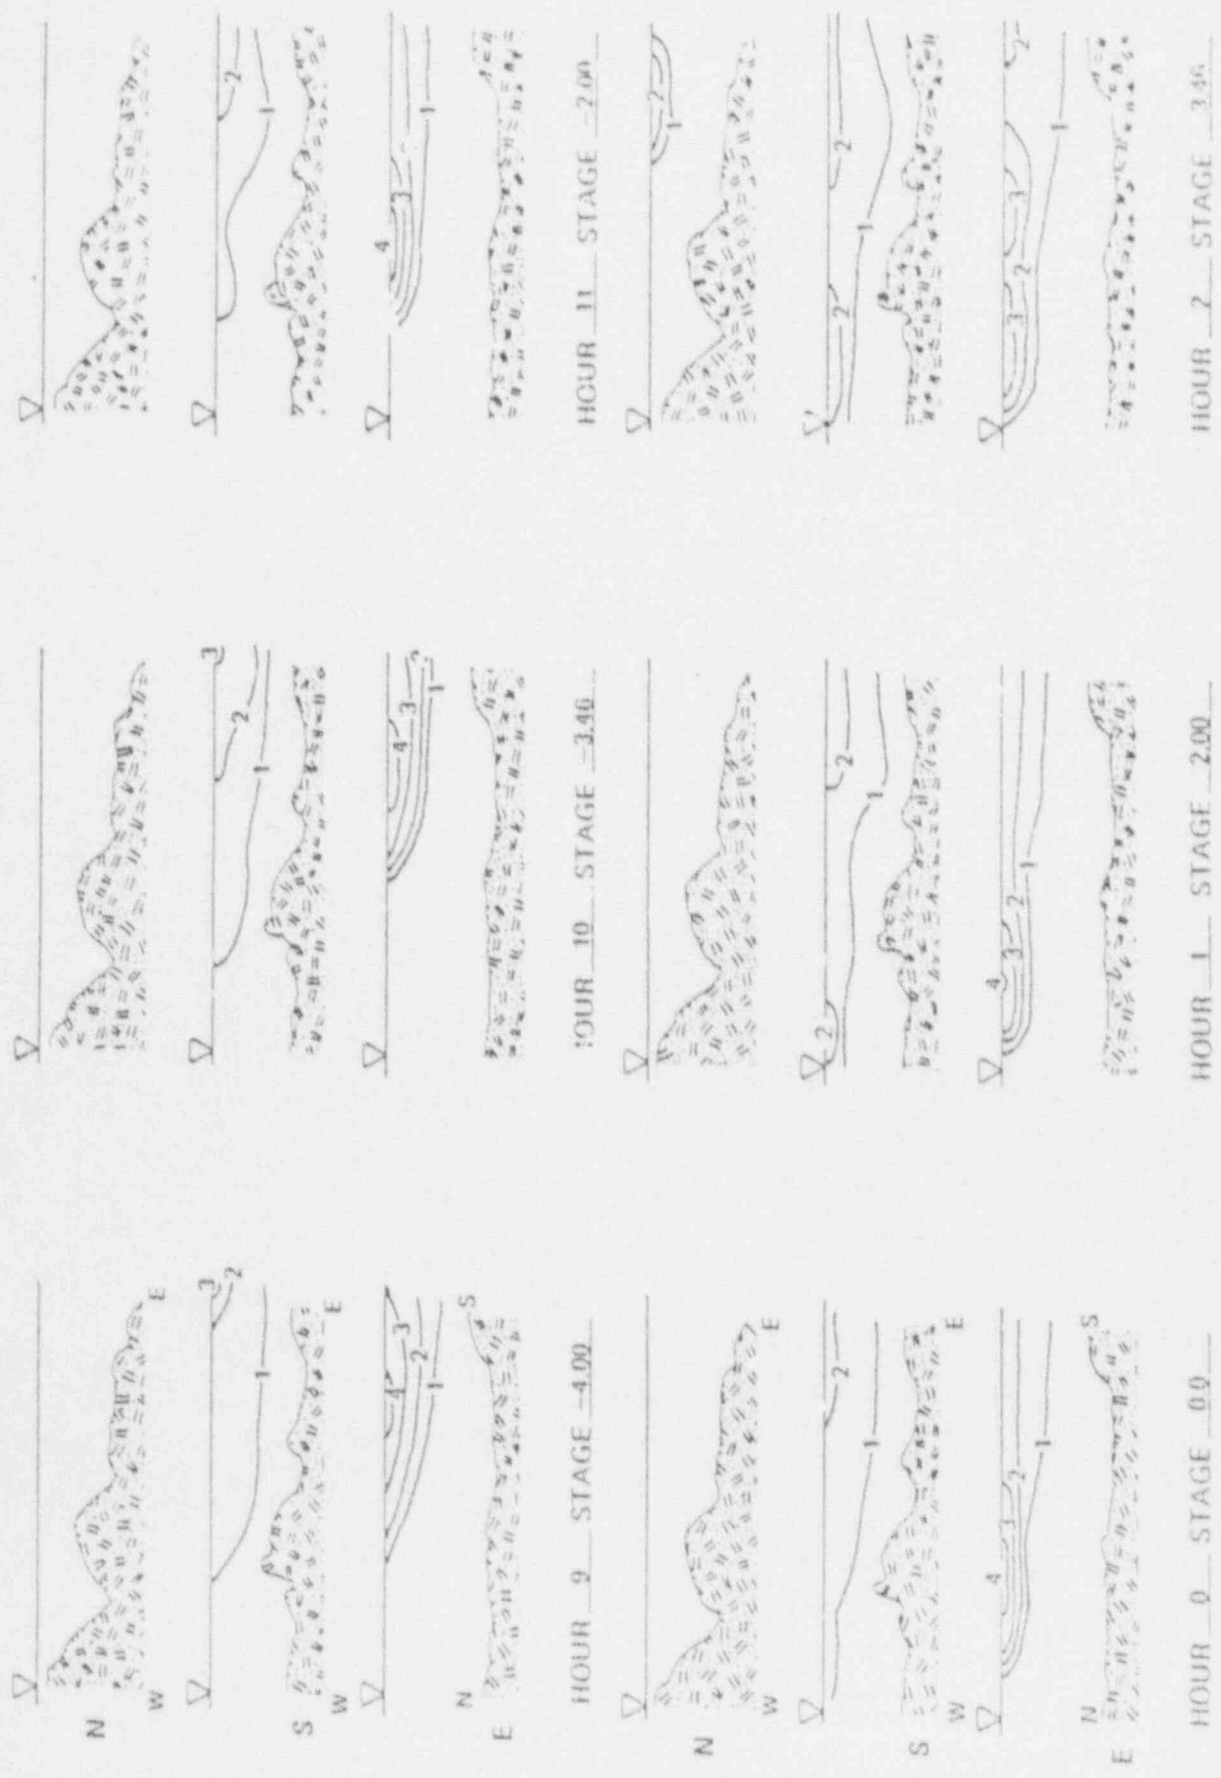 N
W E
3
2
1
S
W E
4
3
2
1
N S
E
HOUR 9 STAGE -4.00
3
2
1
4
3
2
1
HOUR 10 STAGE -3.46
2
1
4
3
1
HOUR 11 STAGE -2.00
N
W E
2
1
S
W E
4
3
2
1
N S
E
HOUR 0 STAGE 0.0
2
2
1
4
3
2
1
HOUR 1 STAGE 2.00
2
1
2
2
1
3
3
2
2
1
HOUR 2 STAGE 3.46